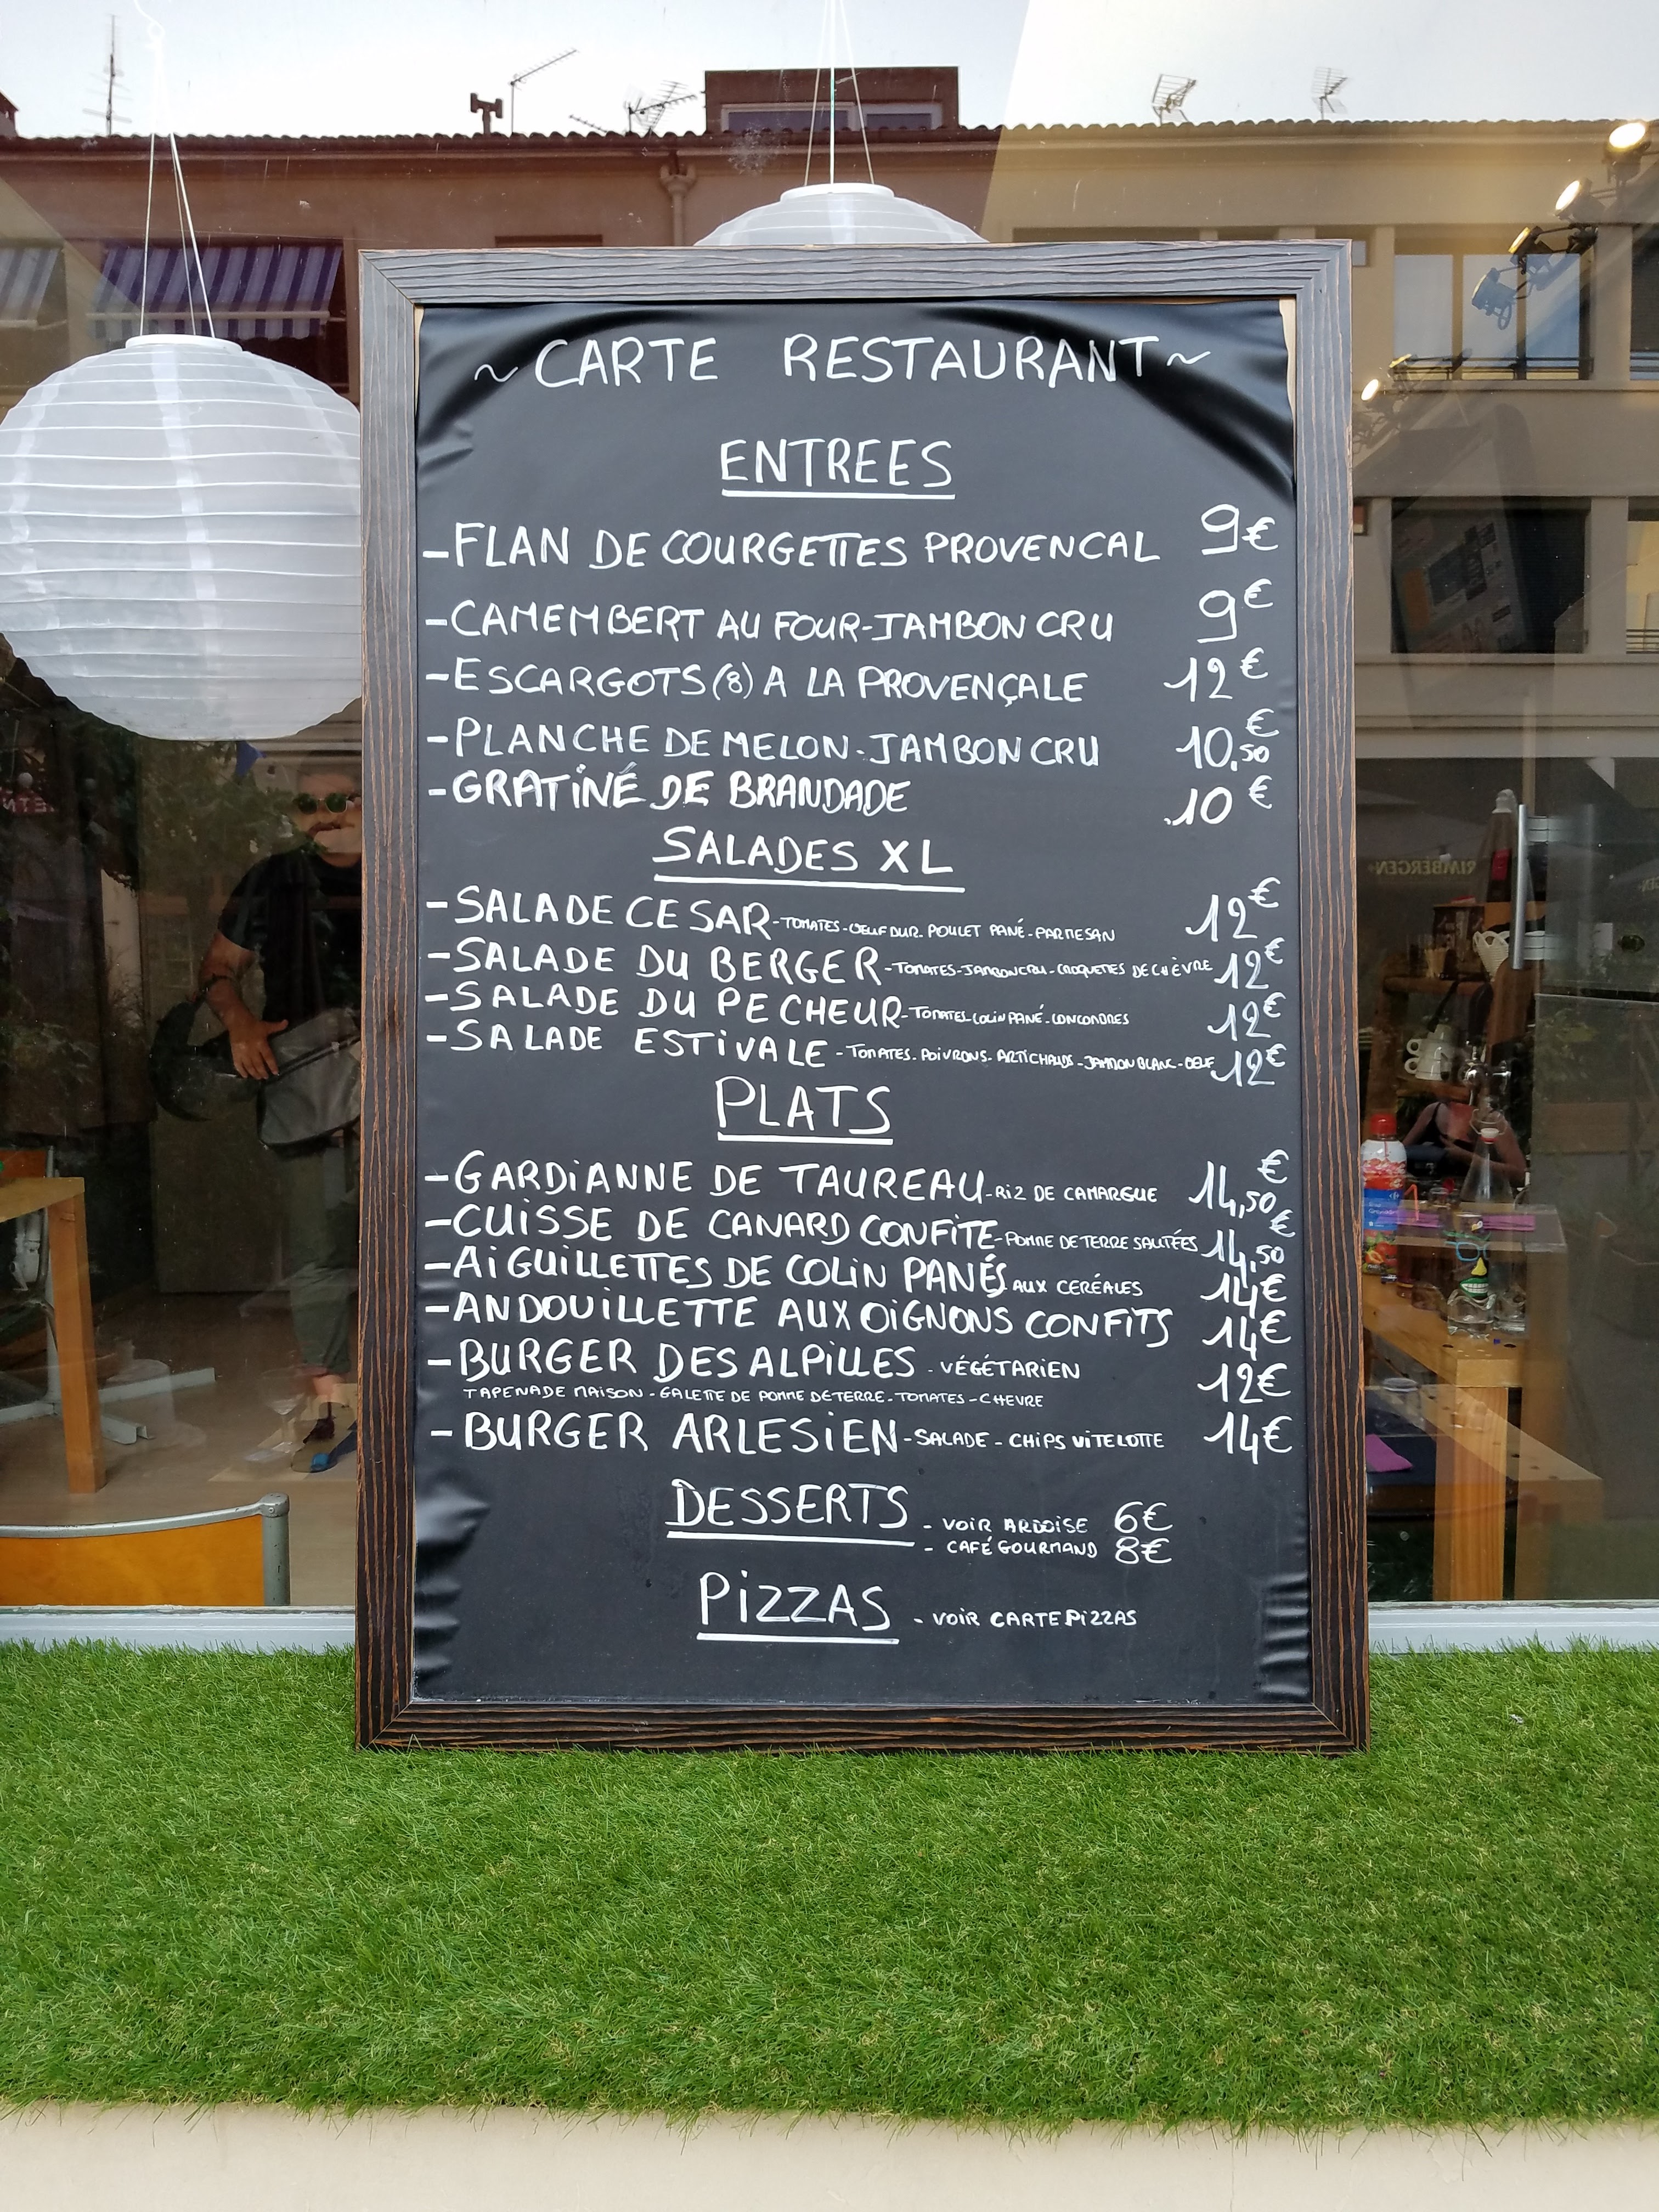 ~ CARTE RESTAURANT ~
ENTREES
- FLAN DE COURGETTES PROVENCAL 9€
- CAMEMBERT AU FOUR - JAMBON CRU 9€
- ESCARGOTS (8) A LA PROVENÇALE 12€
- PLANCHE DE MELON - JAMBON CRU 10,50€
- GRATINÉ DE BRANDADE 10€
SALADES XL
- SALADE CESAR - TOMATES - OEUF DUR - POULET PANÉ - PARMESAN 12€
- SALADE DU BERGER - TOMATES - JAMBON CRU - CROQUETTES DE CHÈVRE 12€
- SALADE DU PECHEUR - TOMATES - COLIN PANÉ - CONCOMBRES 12€
- SALADE ESTIVALE - TOMATES - POIVRONS - ARTICHAUDS - JAMBON BLANC - OEUF 12€
PLATS
- GARDIANNE DE TAUREAU - RIZ DE CAMARGUE 14,50€
- CUISSE DE CANARD CONFITE - POMME DE TERRE SAUTÉES 14,50€
- AIGUILLETTES DE COLIN PANÉS AUX CEREALES 14€
- ANDOUILLETTE AUX OIGNONS CONFITS 14€
- BURGER DES ALPILLES - VÉGÉTARIEN 12€
TAPENADE MAISON - GALETTE DE POMME DE TERRE - TOMATES - CHEVRE
- BURGER ARLESIEN - SALADE - CHIPS VITELOTTE 14€
DESSERTS - VOIR ARDOISE 6€
- CAFÉ GOURMAND 8€
PIZZAS - VOIR CARTE PIZZAS